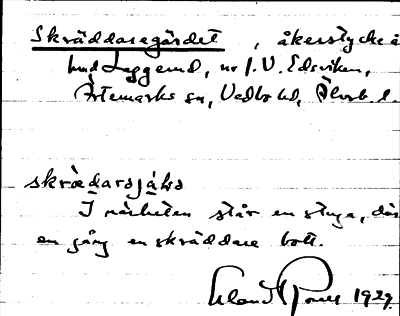 Skräddaregärdet, åkerstycke å
hmd Leggerud, nr 1. V. Edsviken,
Ärtemarks sn, Vedbo hd, Älvsb. l.
skrædarəjálə
I närheten står en stuga, där
en gång en skräddare bott.
1929.